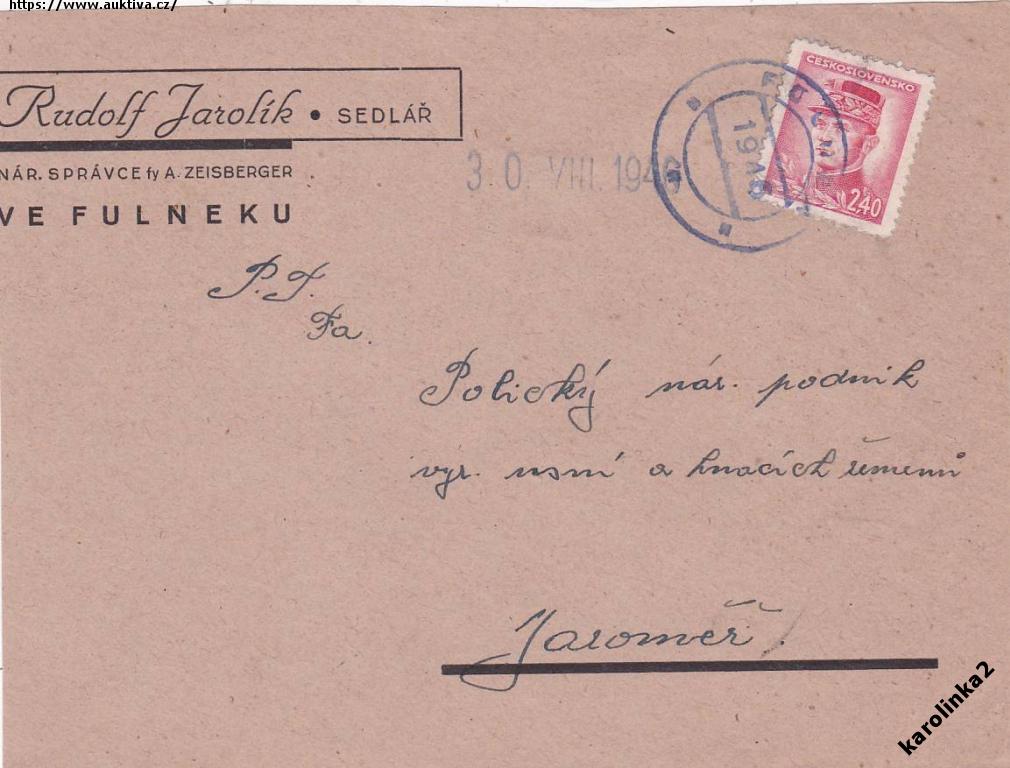 https://www.auktiva.cz/
Rudolf Jarolík • SEDLÁŘ
NÁR. SPRÁVCE fy A. ZEISBERGER
VE FULNEKU
ČESKOSLOVENSKO
2,40
30. VIII. 194
P. T.
Fa.
Polický nár. podnik
vyr. usní a hnacích řemenů
Jaroměř
karolinka2